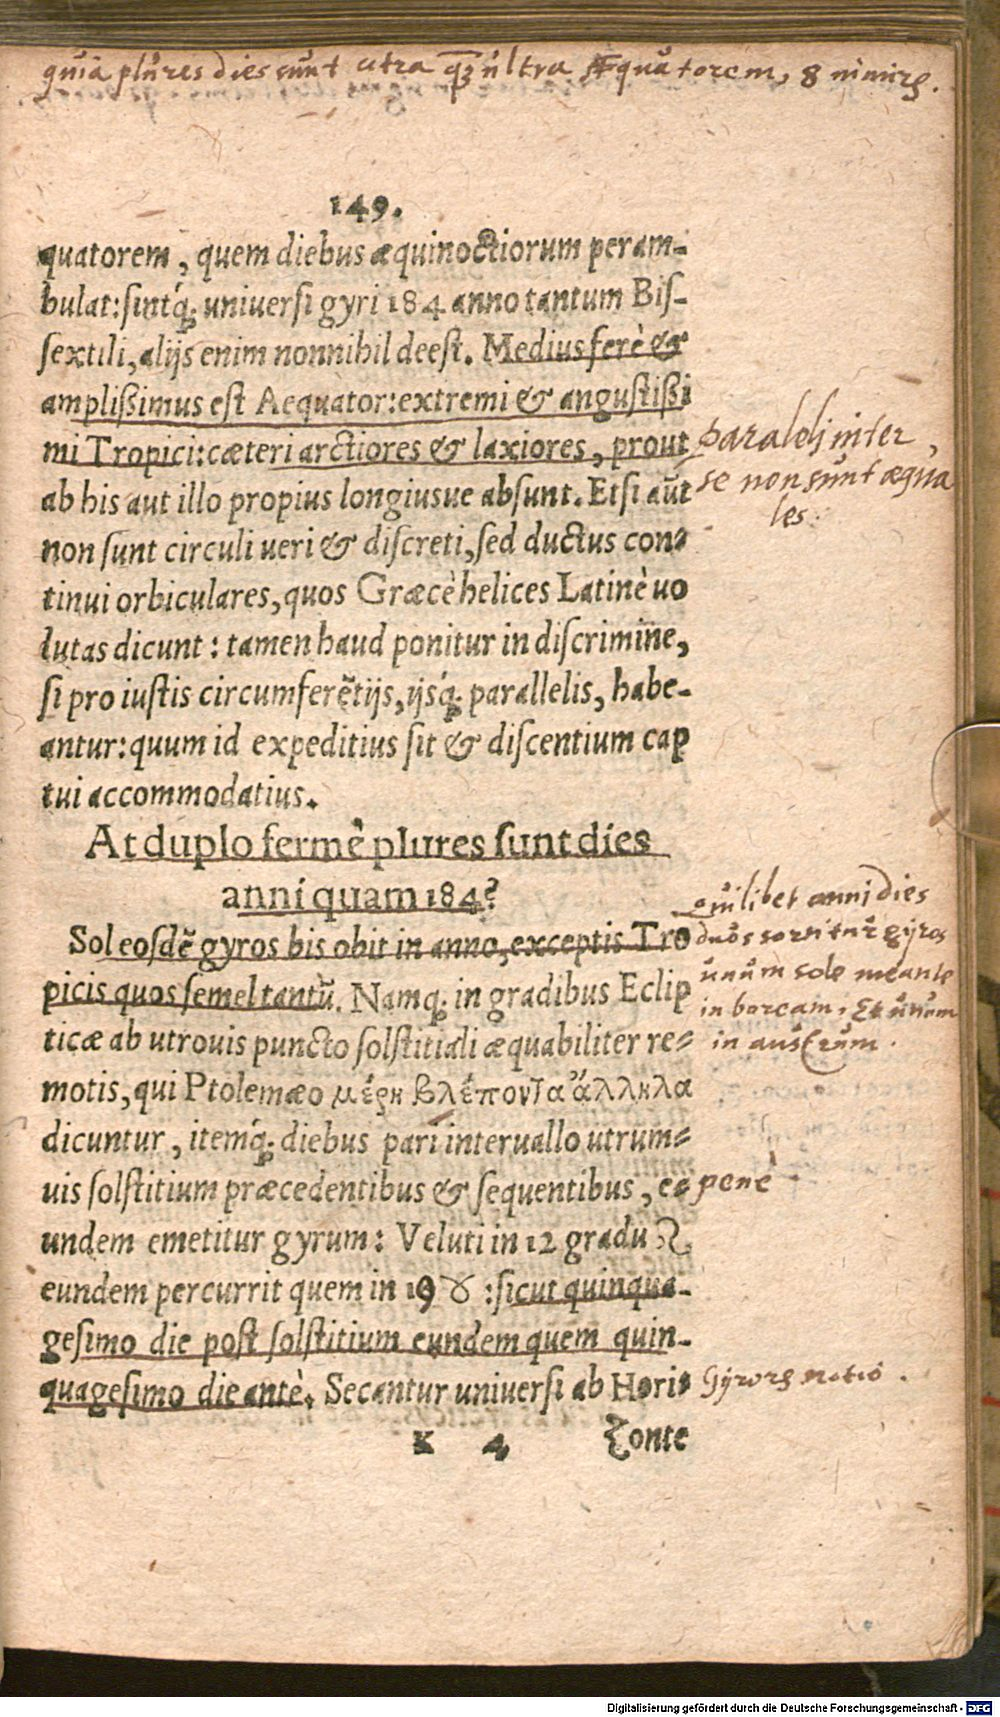 quia plures dies sunt citra qz ultra Æquatorem, 8 nimirꝝ.
149.
quatorem, quem diebus æquinoctiorum peram-
bulat: sintq́; universi gyri 184 anno tantum Bis-
sextili, alijs enim nonnihil deest. Medius ferè &
amplißimus est Aequator: extremi & angustißi
mi Tropici: cæteri arctiores & laxiores, prout
ab his aut illo propius longiusue absunt. Etsi aūt
non sunt circuli ueri & discreti, sed ductus con-
tinui orbiculares, quos Græcè helices Latinè uo
lutas dicunt: tamen haud ponitur in discrimine,
si pro iustis circumferẽtijs, ijsq́; parallelis, habe-
antur: quum id expeditius sit & discentium cap
tui accommodatius.
paraleli inter
se non sunt æqua
les
At duplo fermè plures sunt dies
anni quam 184?
Sol eosdẽ gyros bis obit in anno, exceptis Tro
picis quos semel tantũ. Namq; in gradibus Eclip
ticæ ab utrouis puncto solstitiali æquabiliter re-
motis, qui Ptolemæo μέρη βλέποντα ἄλληλα
dicuntur, itemq́; diebus pari interuallo utrum-
uis solstitium præcedentibus & sequentibus, e-
undem emetitur gyrum: Veluti in 12 gradu ♌
eundem percurrit quem in 19 ♉: sicut quinqua-
gesimo die post solstitium eundem quem quin-
quagesimo die antè. Secantur universi ab Hori-
quilibet anni dies
duos sortitur gijros
unum sole meante
in boream, Et unum
in austrum.
penè
Gijrorꝝ notio.
K 4 zonte
Digitalisierung gefördert durch die Deutsche Forschungsgemeinschaft - DFG